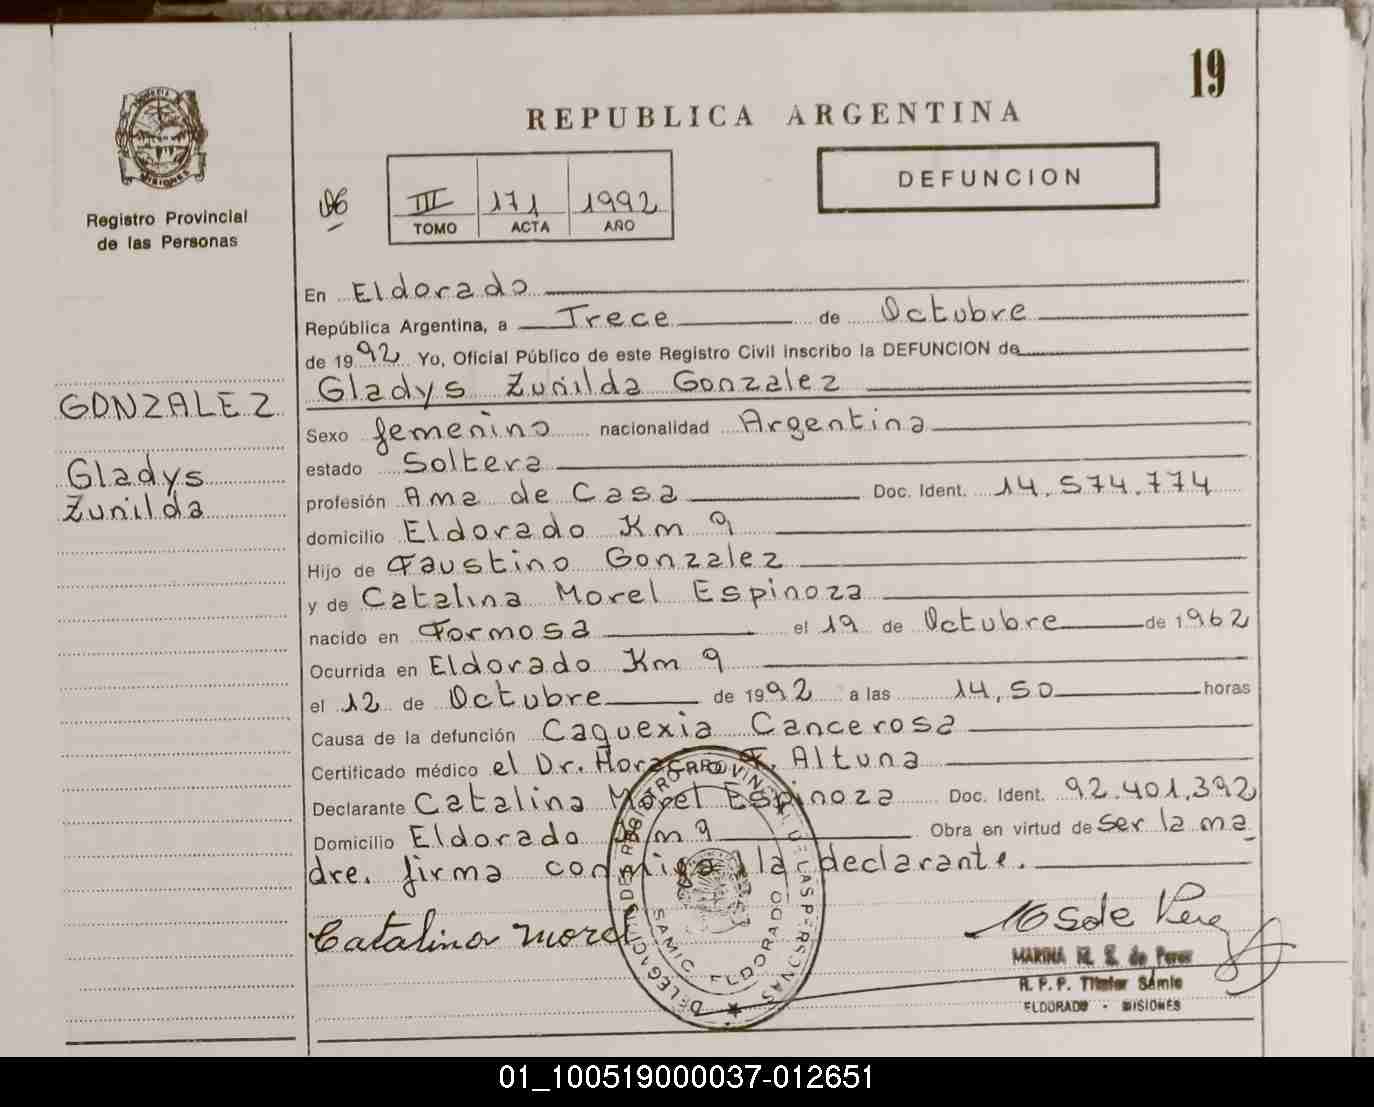 19
REPUBLICA ARGENTINA
DEFUNCION
MISIONES
Registro Provincial
de las Personas
III 171 1992
TOMO ACTA AÑO
En Eldorado
República Argentina, a Trece de Octubre
de 1992 Yo, Oficial Público de este Registro Civil inscribo la DEFUNCION de
Gladys Zunilda Gonzalez
GONZALEZ
Gladys
Zunilda
Sexo femenino nacionalidad Argentina
estado Soltera
profesión Ama de Casa Doc. Ident. 14.574.774
domicilio Eldorado Km 9
Hijo de Faustino Gonzalez
y de Catalina Morel Espinoza
nacido en Formosa el 19 de Octubre de 1962
Ocurrida en Eldorado Km 9
el 12 de Octubre de 1992 a las 14,50 horas
Causa de la defunción Caquexia Cancerosa
Certificado médico el Dr. Horacio F. Altuna
Declarante Catalina Morel Espinoza Doc. Ident. 92.401.392
Domicilio Eldorado Km 9 Obra en virtud de ser la ma
dre. firma conmigo la declarante.
Catalina Morel
DELEGACION DEL REGISTRO PROVINCIAL DE LAS PERSONAS
SAMIC ELDORADO
MARINA de Perez
R. P. P. Titular Samic
ELDORADO - MISIONES
01_100519000037-012651